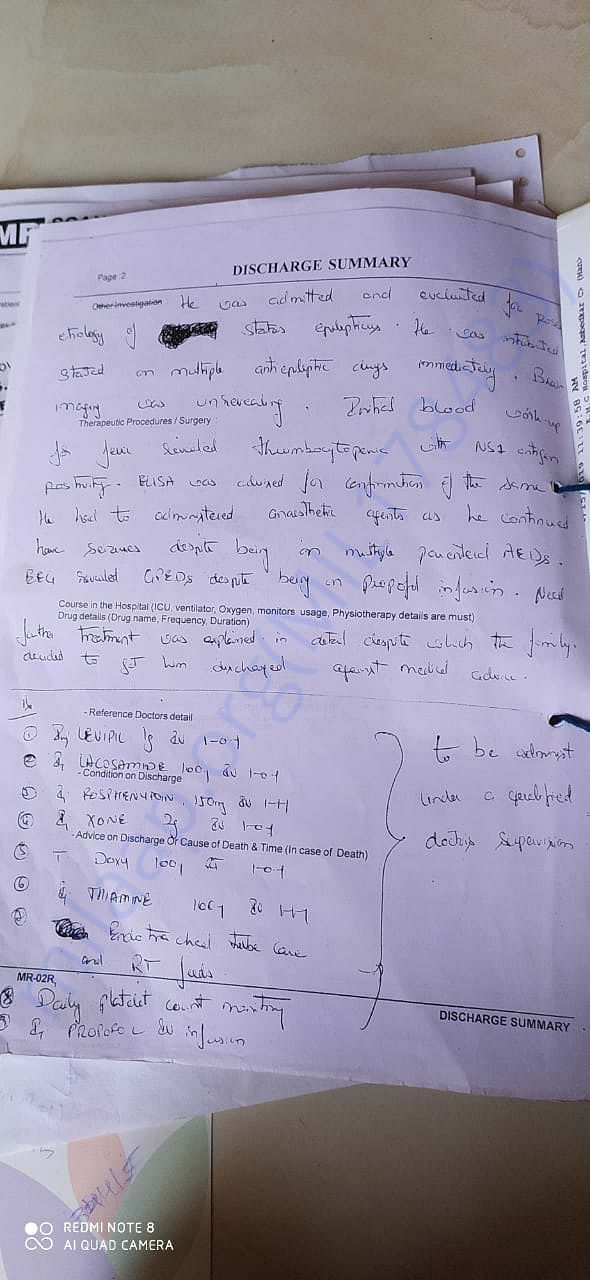 DISCHARGE SUMMARY
Page 2
Other Investigation He was admitted and evaluated for
etiology of status epilepticus. He was intubated
started on multiple antiepileptic drugs immediately. Brain
imaging was unrevealing. Initial blood work-up
Therapeutic Procedures / Surgery :
for fever revealed thrombocytopenia with NS1 antigen
positivity. ELISA was advised for confirmation of the same
He had to administered anaesthetic agents as he continued
have seizures despite being on multiple parenteral AEDs.
EEG revealed GPEDs despite being on propofol infusion. Need
Course in the Hospital (ICU, ventilator, Oxygen, monitors usage, Physiotherapy details are must)
Drug details (Drug name, Frequency, Duration)
further treatment was explained in detail despite which the family
decided to get him discharged against medical advice.
- Reference Doctors detail
① Inj LEVIPIL 1g IV 1-0-1
② Inj LACOSAMIDE 100mg IV 1-0-1
- Condition on Discharge
③ Inj FOSPHENYTOIN 150mg IV 1-1-1
④ Inj XONE 2g IV 1-0-1
- Advice on Discharge Or Cause of Death & Time (In case of Death)
⑤ T Doxy 100mg 1-0-1
⑥ Inj THIAMINE 100mg IV 1-1-1
⑦ Endotracheal tube care
and RT feeds.
to be administ
under a qualified
doctor's supervision
MR-02R,
⑧ Daily platelet count monitoring
⑨ Inj PROPOFOL IV infusion
DISCHARGE SUMMARY
milaap.org(MIL178483)
11:39:58 AM
Hospital, Ambedkar
REDMI NOTE 8
AI QUAD CAMERA